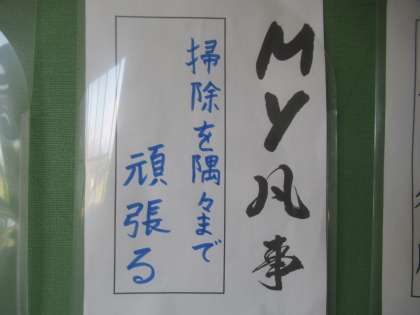 MY凡事
掃除を隅々まで
頑張る